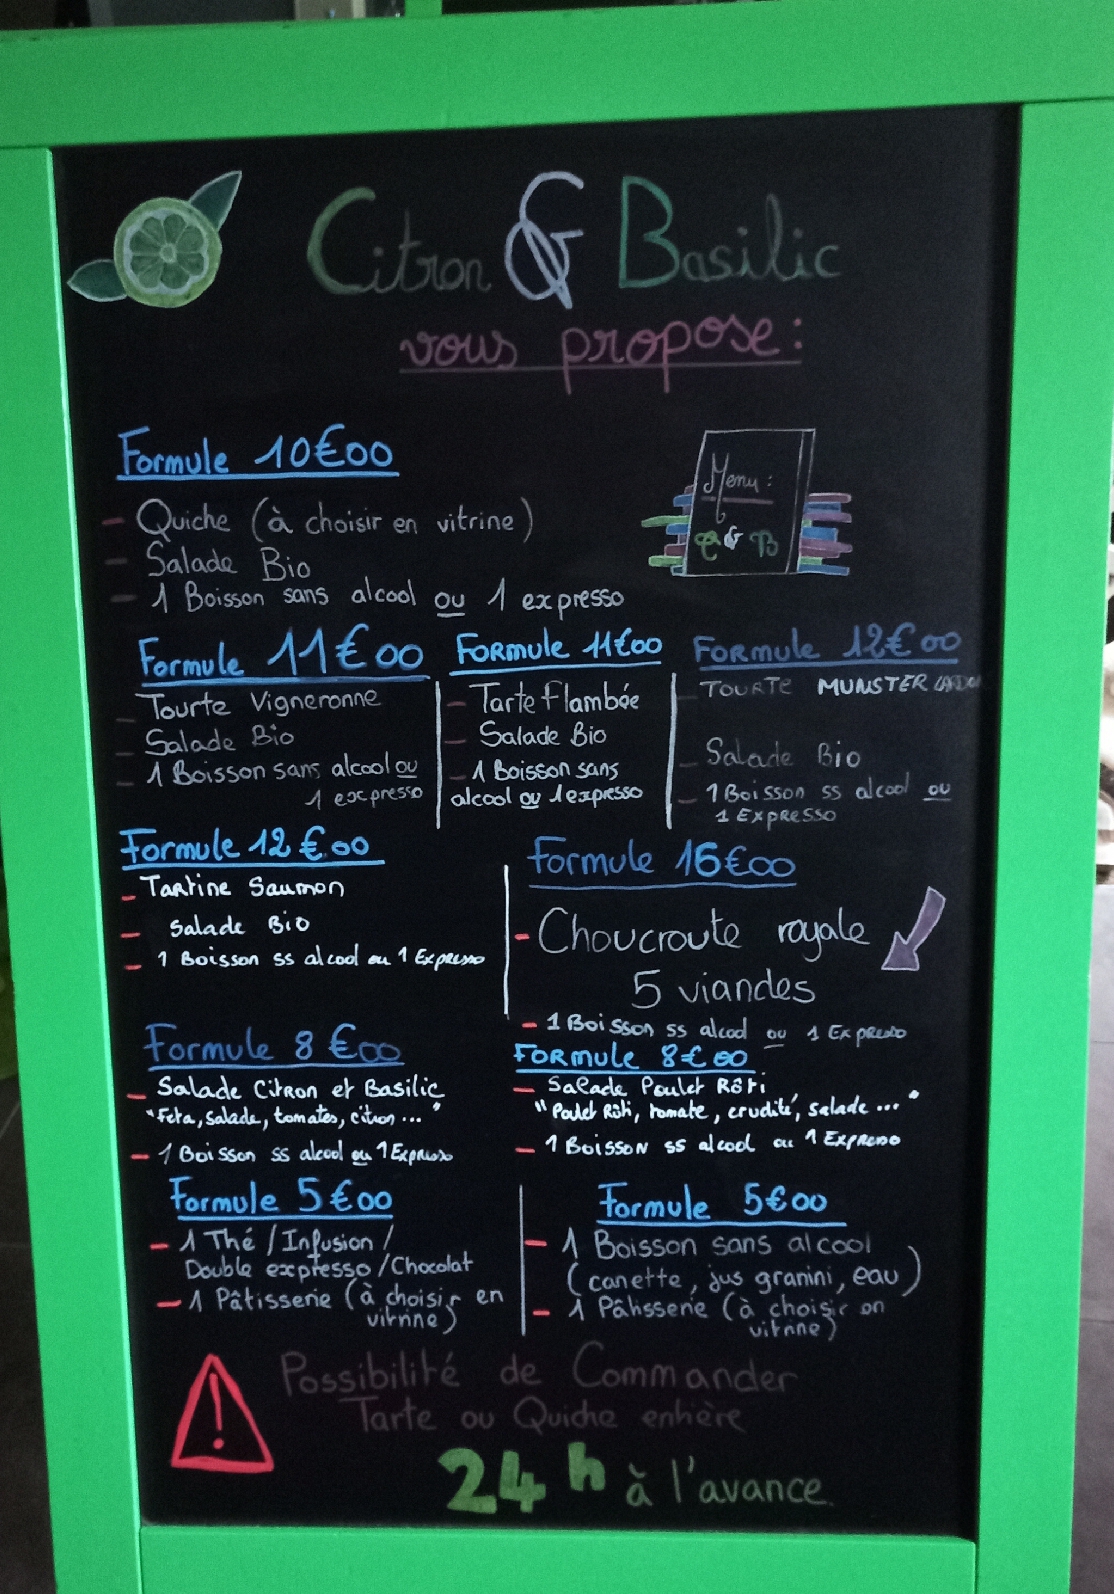 Citron & Basilic
vous propose :
Formule 10€00
- Quiche (à choisir en vitrine)
- Salade Bio
- 1 Boisson sans alcool ou 1 expresso
Menu :
C & B
Formule 11€00
- Tourte Vigneronne
- Salade Bio
- 1 Boisson sans alcool ou
1 expresso
Formule 11€00
- Tarte flambée
- Salade Bio
- 1 Boisson sans
alcool ou 1 expresso
Formule 12€00
- Tourte MUNSTER
- Salade Bio
- 1 Boisson ss alcool ou
1 Expresso
Formule 12€00
- Tartine Saumon
- Salade Bio
- 1 Boisson ss alcool ou 1 Expresso
Formule 16€00
- Choucroute royale
5 viandes
- 1 Boisson ss alcool ou 1 Expresso
Formule 8€00
- Salade Citron et Basilic
"Feta, Salade, tomates, citron ..."
- 1 Boisson ss alcool ou 1 Expresso
Formule 8€00
- Salade Poulet Rôti
"Poulet Rôti, tomate, crudité, salade ..."
- 1 Boisson ss alcool ou 1 Expresso
Formule 5€00
- 1 Thé / Infusion /
Double expresso / Chocolat
- 1 Pâtisserie (à choisir en
vitrine)
Formule 5€00
- 1 Boisson sans alcool
(canette, jus granini, eau)
- 1 Pâtisserie (à choisir en
vitrine)
! Possibilité de Commander
Tarte ou Quiche entière
24h à l'avance